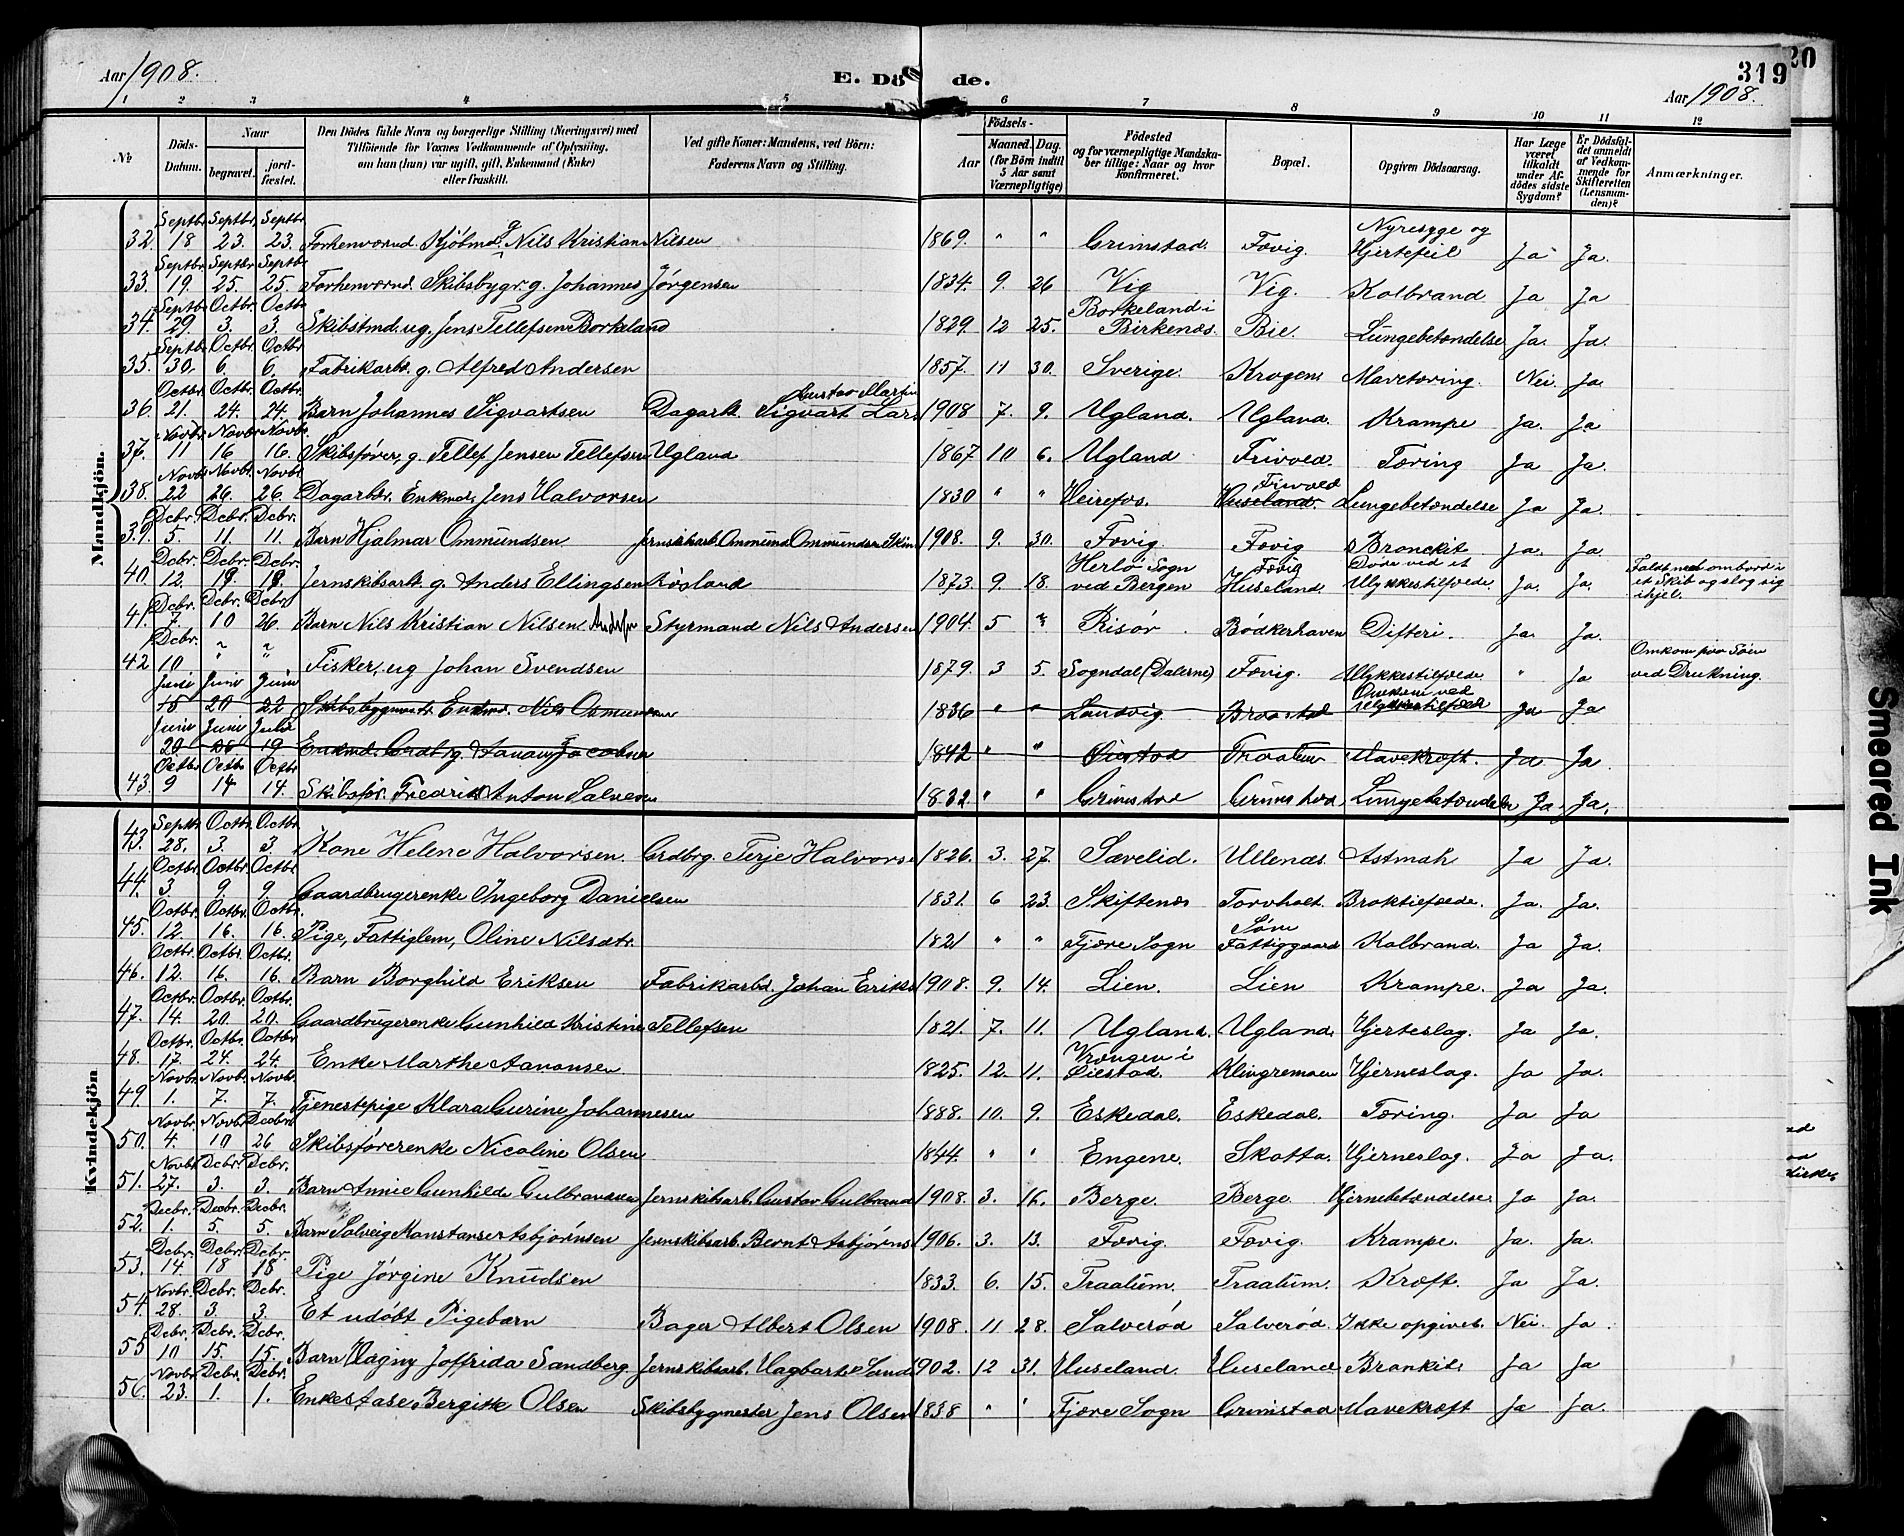 Aar 1908. E. Dö de. 319 20
Aar 1908.
1 2 3 4 5 6 7 8 9 10 11 12
No Döds-Datum. Naar begravet. jord-fæstet. Den Dödes fulde Navn og borgerlige Stilling (Næringsvei) med Tilföiende for Voxnes Vedkommende af Oplysning, om han (hun) var ugift, gift, Enkemand (Enke) eller fraskilt. Ved gifte Koner: Mandens, ved Börn: Faderens Navn og Stilling. Födsels- Aar Maaned. Dag. (for Börn indtil 5 Aar samt Værnepligtige) Födested og for værnepligtige Mandskaber tillige: Naar og hvor konfirmeret. Bopæl. Opgiven Dödsaarsag. Har Læge været tilkaldt under Afdödes sidste Sygdom? Er Dödsfaldet anmeldt af Vedkommende for Skifteretten (Lensmanden)? Anmærkninger.
Mandkjön.
32. Septbr. 18 Septbr. 23. Septbr. 23. Forhenværnd. Skjöbmd. g. Nils Kristian Nilsen 1869. " " Grimstad. Fævig. Nyresyge og Hjertefeil Ja Ja.
33. Septbr. 19. Septbr. 25. Septbr. 25. Forhenværnd. Skibsbygr. g. Johannes Jörgensen 1834. 9. 26 Vig Vig. Kolbrand Ja Ja
34. Septbr. 29. Octbr. 3. Octbr. 3. Skibstmd. ug. Jens Tellefsen Borkeland 1829. 12 25. Borkeland i Birkenæs. Bie. Lungebetændelse Ja. Ja.
35. Septbr. 30. Octbr. 6. Octbr. 6. Fabrikarb. g. Alfred Andersen 1857. 11 30. Sverige. Krogens Mavetæring. Nei. Ja.
36. Octbr. 21. Octbr. 24. Octbr. 24. Barn Johannes Sigvartsen Dagarb. Gustav Martin Sigvart Lars 1908 7. 9. Ugland. Ugland. Krampe Ja. Ja
37. Novbr. 11 Novbr. 16 Novbr. 16. Skibsförer, g. Tellef Jensen Tellefsen Ugland 1867 10 6. Ugland Frivold. Tæring Ja Ja.
38. Novbr. 22 Novbr. 26. Novbr. 26. Dagarbdr. Enkmd. Jens Halvorsen 1830 " " Heirefos. Frivold Huseland. Lungebetændelse Ja Ja.
39. Debr. 5. Debr. 11. Debr. 11. Barn Hjalmar Ommundsen Jernskibarb. Ommund Ommundsen 1908. 9. 30. Fævig. Fævig Bronckit Ja. Ja.
40. Debr. 12. Debr. 18. Debr. 18. Jernskibsarb. g. Anders Ellingsen Røsland 1873. 9 18. Herlö Sogn ved Bergen Fævig Huseland. Döde ved et Ulykkestilfælde. Ja. Ja. Faldt ned ombord i et Skib og slog sig ihjel.
41. Debr. 7. Debr. 10 Debr. 26. Barn Nils Kristian Nilsen Styrmand Nils Andersen 1904. 5 " Risör. Bödkerhaven Difteri. Ja. Ja.
42 Debr. 10 " " Fisker, ug Johan Svendsen 1879. 3 5. Sogndal (Dalerne) Fævig. Ulykkestilfælde. " Ja Omkom paa Söen ved Drukning.
Juni 15 Juni 20 Juni 22 Skibsbygmestr. Enkmd. Nils Osmundsen 1836 " " Landvig. Braastad Omkom ved Ulykkestilfælde Ja Ja
Juni 20 Juni Juli 19. Enkmd. Grdbrg. Aanon Jacobsen 1842 " " Øiestad Traalum Mavekræft. Ja Ja
43. Octbr. 9 Octbr 14 Octbr 14. Skibsför. Fredrik Anton Salvesen 1832 " " Grimstad Grimstad Lungebetændelse Ja. Ja.
Kvindekjön
43. Septbr. 28. Octbr. 3. Octbr. 3. Kone Helene Halvorsen. Grdbrg. Terje Halvors 1826. 3. 27. Sævelid. Ullenæs Astmah Ja Ja.
44. Octbr. 3 Octbr. 9 Octbr. 9 Gaardbrugerenke Ingeborg Danielsen 1831. 6 23. Skiftenæs Torvholt. Broktilfælde. Ja. Ja.
45. Octbr. 12. Octbr. 16. Octbr. 16. Pige, Fattiglem, Oline Nilsdtr. 1821 " " Fjære Sogn Söm Fattiggaard Kolbrand. Ja Ja.
46. Octbr. 12. Octbr. 16. Octbr. 16. Barn Borghild Eriksen Fabrikarbd. Johan Eriks 1908. 9. 14. Lien. Lien Krampe. Ja Ja.
47. Octbr. 14. Octbr. 20. Octbr. 20. Gaardbrugerenke Gunhild Kristine Tellefsen 1821. 7. 11. Ugland. Ugland. Hjerteslag. Ja Ja.
48. Octbr. 17. Octbr. 24. Octbr 24. Enke Marthe Aanonsen 1825. 12. 11. Vrængen i Øiestad. Klingremoen Hjerneslag. Ja Ja.
49. Novbr. 1. Novb. 7. Novbr. 7. Tjenestepige Klara Gurine Johannesen 1888. 10. 9. Eskedal. Eskedal. Tæring. Ja Ja.
50. Novbr. 4. Novbr. 10 Decbr. 26 Skibsförerenke Nicoline Olsen 1844. " " Engene. Skotta. Hjerneslag. Ja Ja.
51. Novbr. 27. Debr. 3. Debr. 3. Barn Annie Gunhilde Gulbrandsen Jernskibsarb. Gustav Gulbrand 1908. 3. 16. Berge. Berge. Hjernebetændelse. Ja Ja.
52. Decbr. 1. Decbr. 5. Decbr. 5. Barn Solveig Konstanse Asbjörnsen Jernskibsarb. Bernt Asbjörns 1906. 3. 13. Fævig. Fævig. Krampe. Ja. Ja.
53. Debr. 14. Debr. 18 Debr. 18 Pige Jörgine Knudsen 1833. 6. 15. Traalum. Traalum. Kræft. Ja Ja.
54. Novbr. 28. Debr. 3 Debr. 3 Et udöbt Pigebarn Bager Albert Olsen 1908. 11 28. Salveröd Salveröd. Ikke opgivet. Nei. Ja.
55 Debr. 10 Debr. 15. Debr. 15. Barn Vagny Joffrida Sandberg. Jernskibsarb. Hagbart Sand 1902. 12 31. Huseland. Huseland. Bronkit. Ja Ja
56. Novbr. 23. Debr. 1. Debr. 1. Enke Aase Bergitte Olsen Skibsbygmester Jens Olsen 1838 " " Fjære Sogn Grimstad Mavekræft Ja Ja.
Smeared Ink